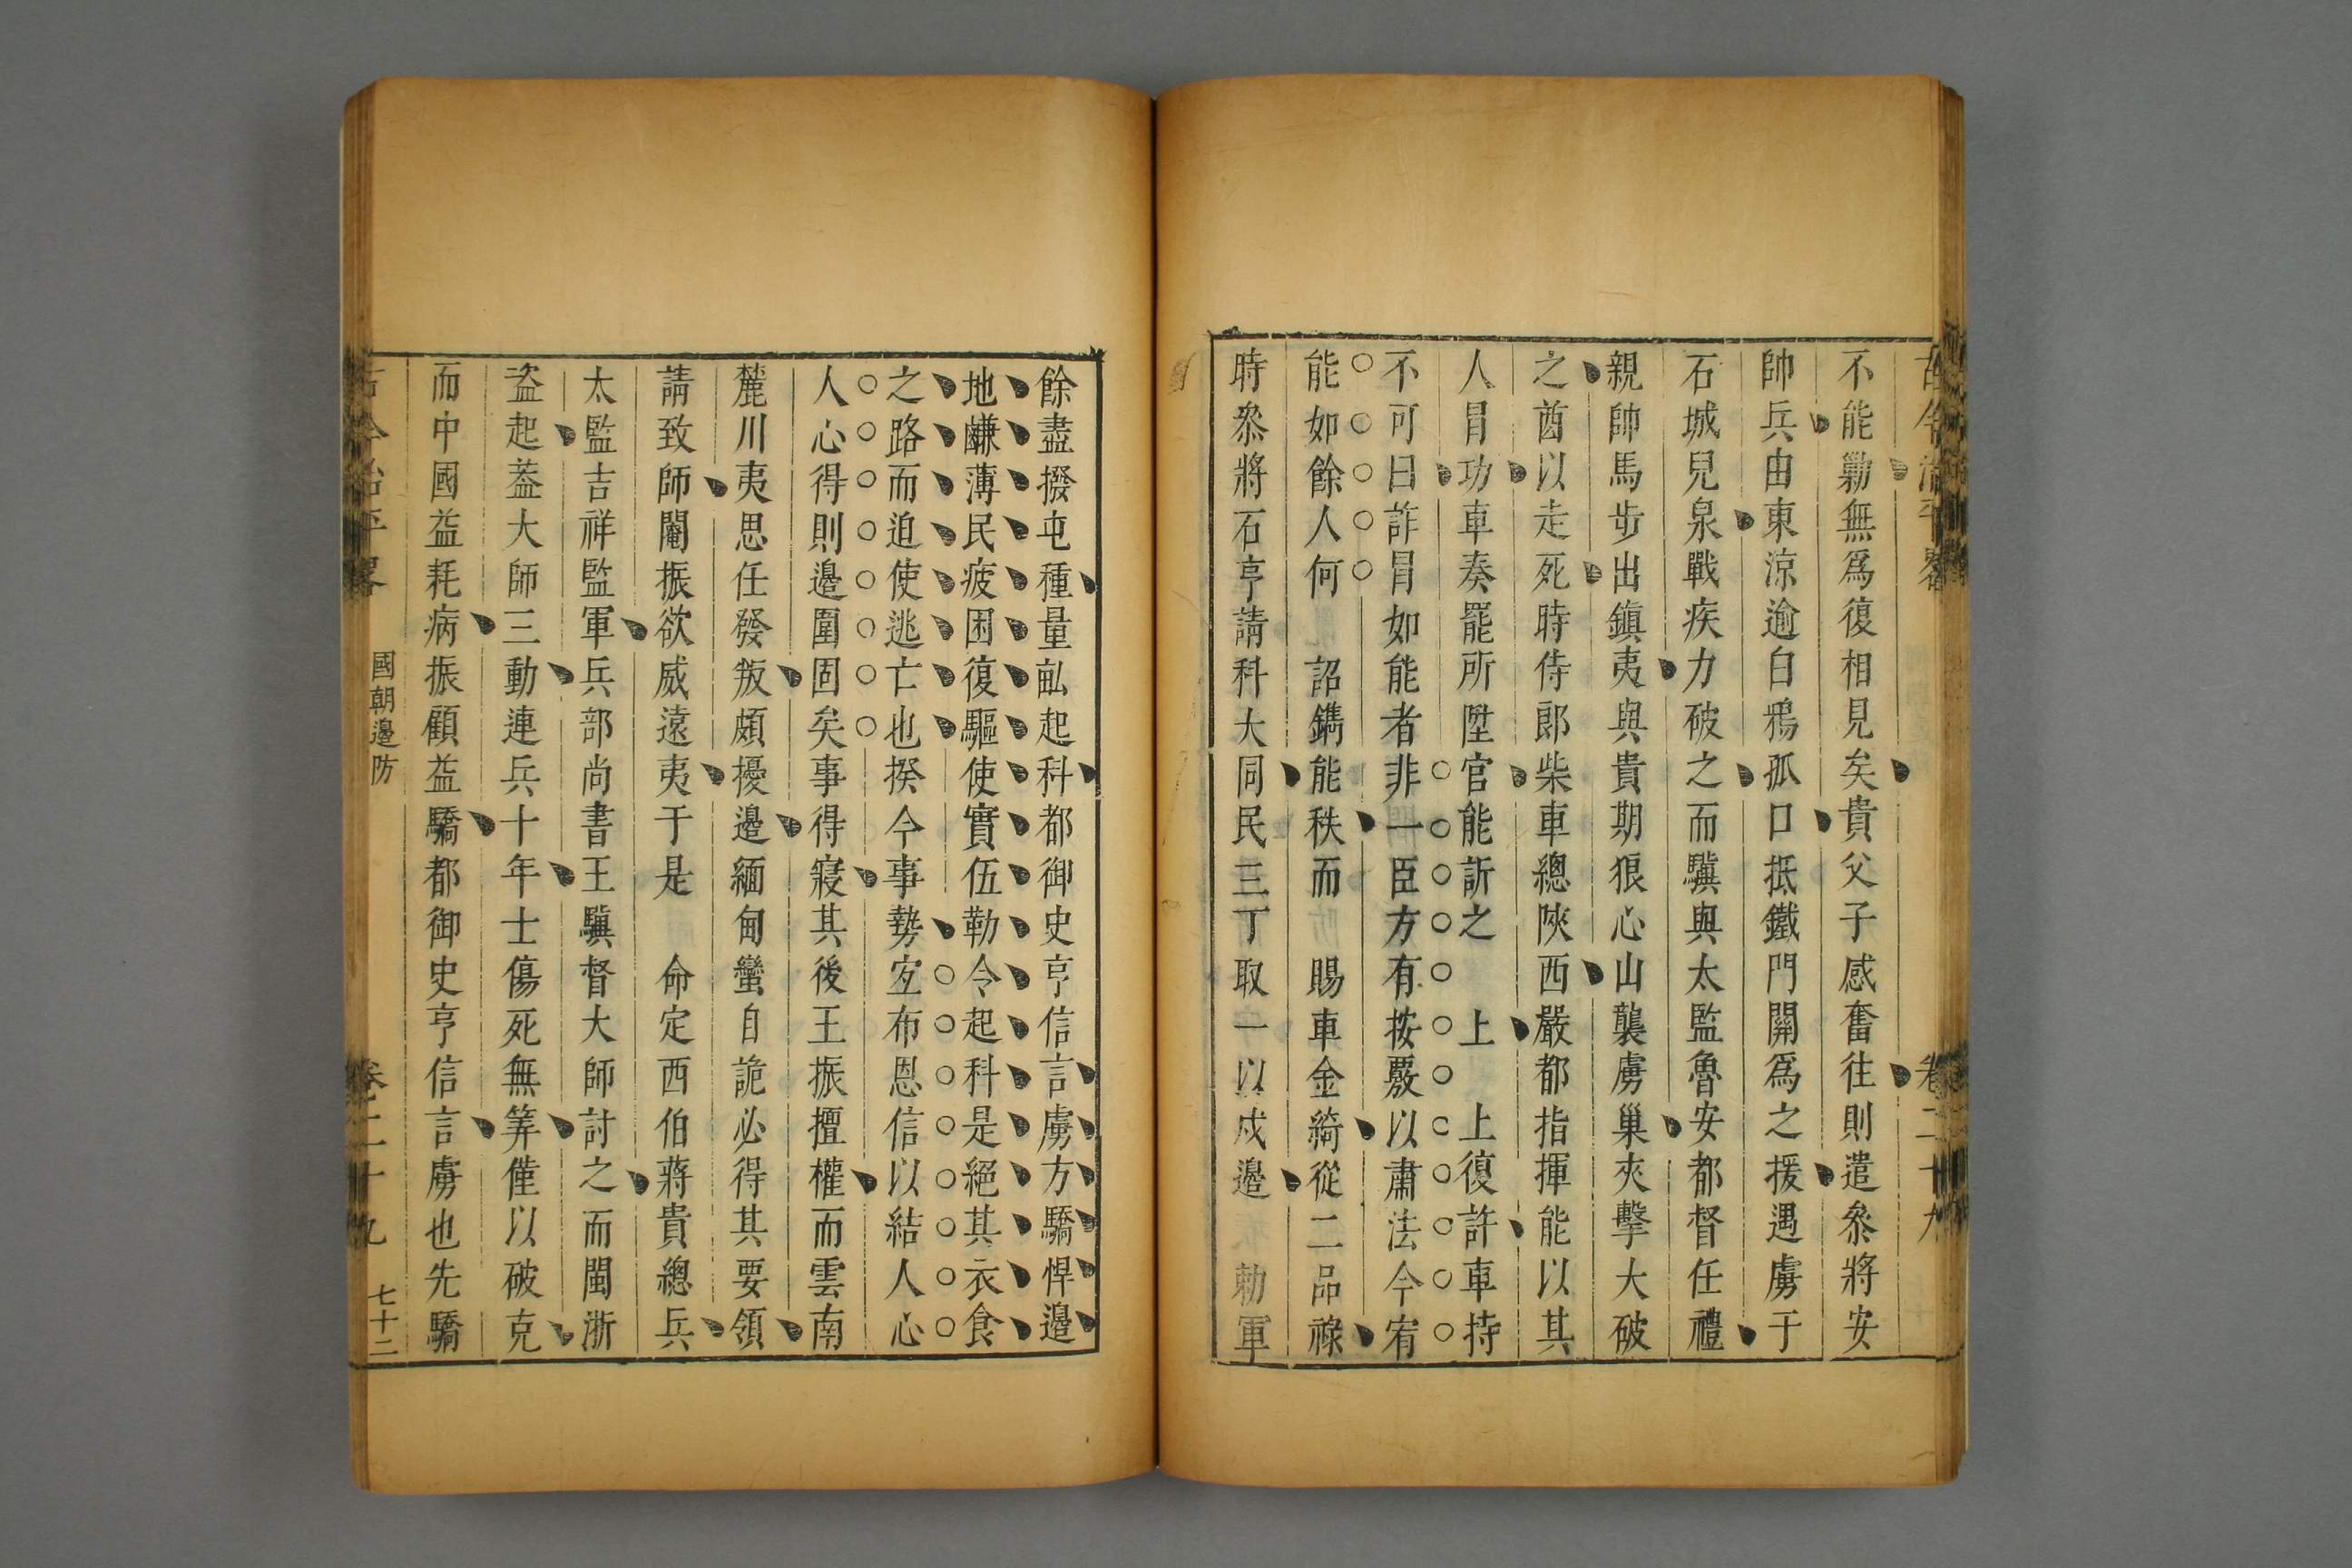 古今治平畧 卷二十九
不能勦無爲復相見矣貴父子感奮往則遣叅將安
帥兵由東涼逾白鴉孤口抵鐵門關爲之援遇虜于
石城兒泉戰疾力破之而驥與太監魯安都督任禮
親帥馬步出鎮夷與貴期狼心山襲虜巢夾擊大破
之酋以走死時侍郎柴車總陝西嚴都指揮能以其
人冒功車奏罷所陞官能訴之 上 上復許車持
不可曰詐冒如能者非一臣方有按覈以肅法今宥
能如餘人何 詔鐫能秩而 賜車金綺從二品祿
時叅將石亨請科大同民三丁取一以戍邉 勅軍
餘盡撥屯種量畆起科都御史亨信言虜方驕悍邉
地鹻薄民疲困復驅使實伍勒令起科是絕其衣食
之路而迫使逃亡也揆今事勢宐布恩信以結人心
人心得則邉圍固矣事得寢其後王振擅權而雲南
麓川夷思任發叛頗擾邉緬甸蠻自詭必得其要領
請致師闡振欲威遠夷于是 命定西伯蔣貴總兵
太監吉祥監軍兵部尚書王驥督大師討之而閩浙
盜起葢大師三動連兵十年士傷死無筭僅以破克
而中國益耗病振顧益驕都御史亨信言虜也先驕
古今治平畧 國朝邉防 卷二十九 七十二